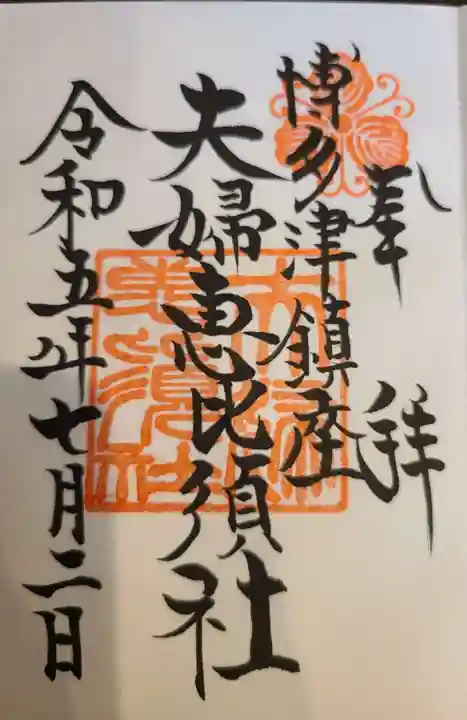 奉拝
博多津鎮座
夫婦恵比須社
令和五年七月二日